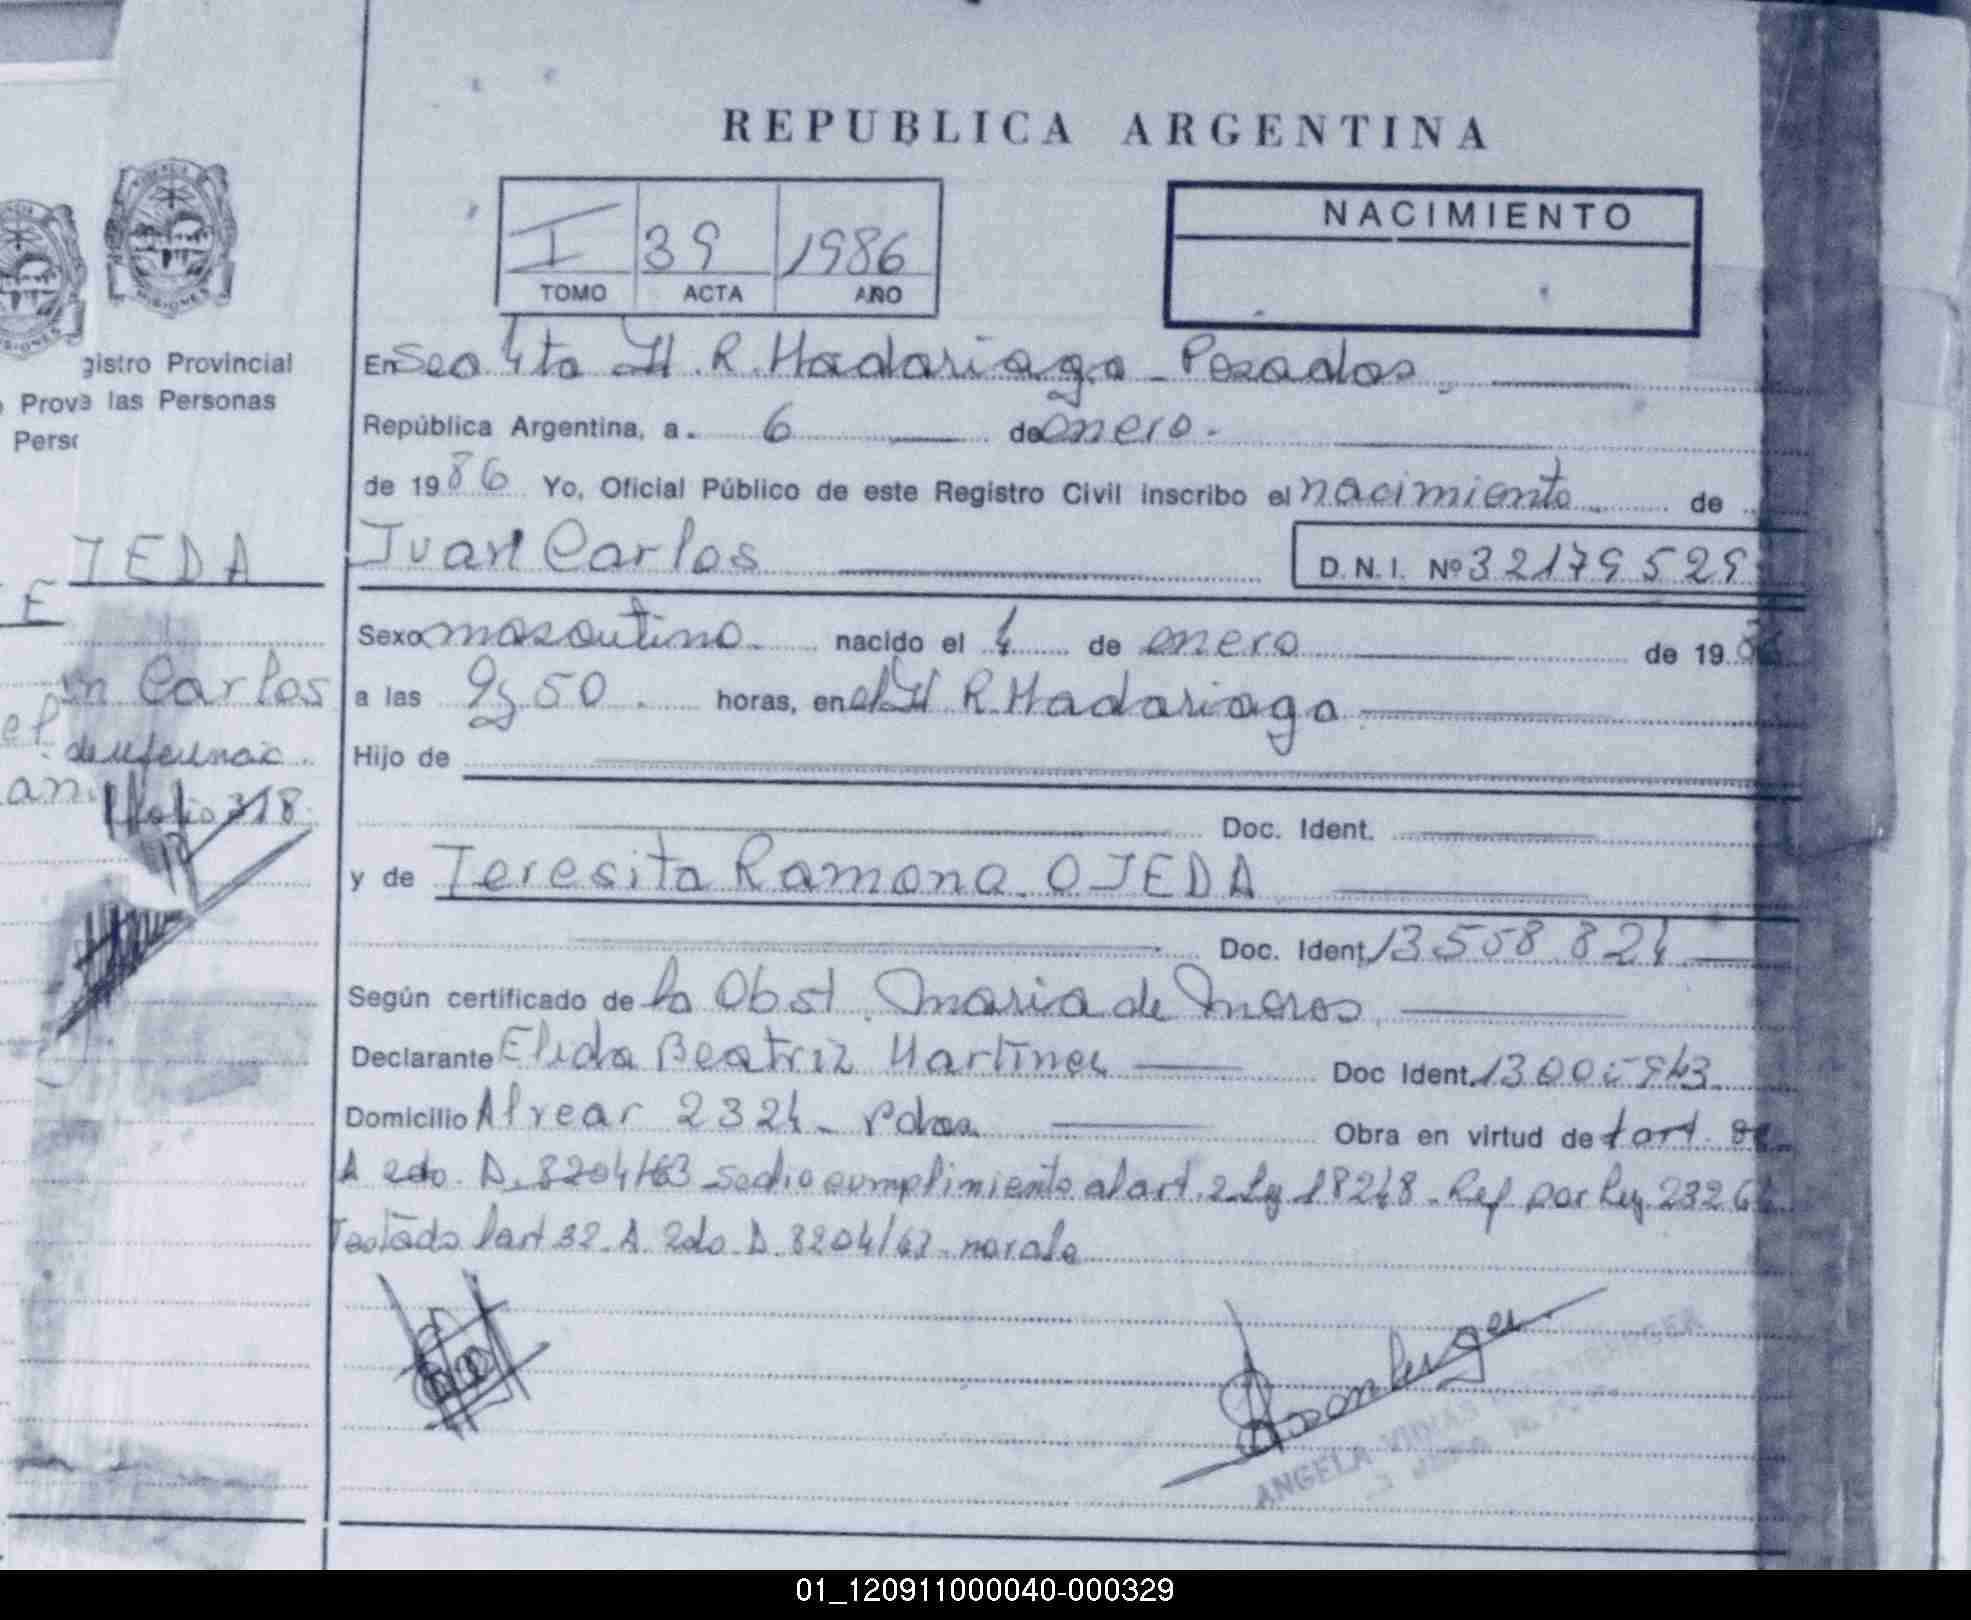 REPUBLICA ARGENTINA
I 39 1986
TOMO ACTA AÑO
NACIMIENTO
gistro Provincial
Prov
a las Personas
Perso
En Sec 4ta H. R. Madariaga - Posadas
República Argentina, a 6 de enero.
de 1986 Yo, Oficial Público de este Registro Civil inscribo el nacimiento de
JEDA
Juan Carlos
D.N.I. Nº 32179529
E
Sexo masculino nacido el 4 de enero de 1986
n Carlos
a las 9 y 50 horas, en el H R. Madariaga
de defunción.
Hijo de
folio 318
Doc. Ident.
y de Teresita Ramona OJEDA
Doc. Ident. 13.558.824
Según certificado de la Obst. Maria de Meros
Declarante Elida Beatriz Martinez Doc Ident.
Domicilio Alvear 2324 - Pdas. Obra en virtud de
A 2do. D. 8204/63 se dio cumplimiento al art. 2 Ley 18248 - Ref por Ley 23264
Testado l art 32 A 2do D. 8204/63 no vale
ANGELA VIÑAS
01_120911000040-000329